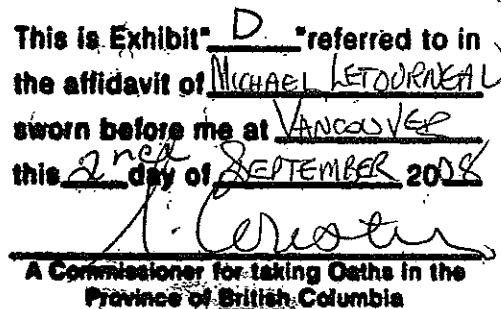 This is Exhibit "D" referred to in
the affidavit of MICHAEL LETOURNEAU
sworn before me at VANCOUVER
this 2nd day of SEPTEMBER 2008
A Commissioner for taking Oaths in the
Province of British Columbia